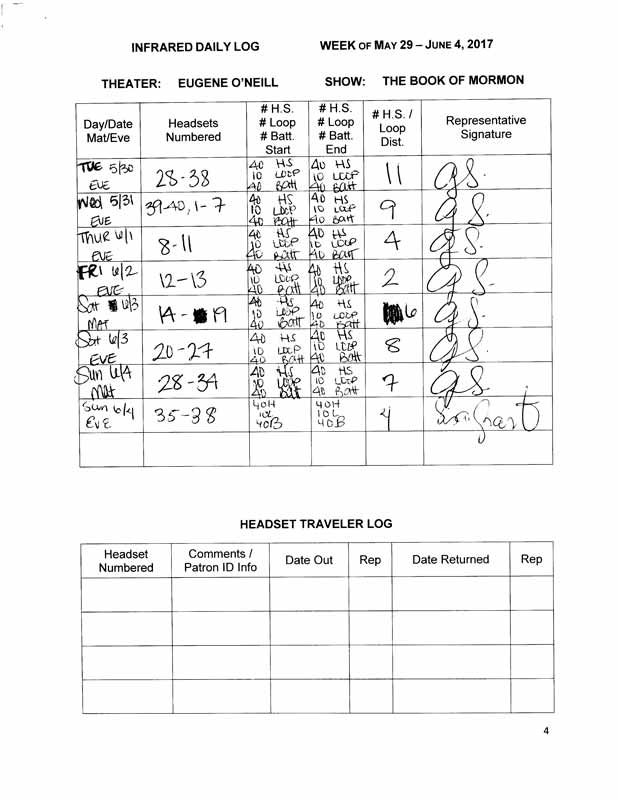 INFRARED DAILY LOG WEEK OF MAY 29 – JUNE 4, 2017
THEATER: EUGENE O'NEILL SHOW: THE BOOK OF MORMON
Day/Date Mat/Eve Headsets Numbered # H.S. # Loop # Batt. Start # H.S. # Loop # Batt. End # H.S. / Loop Dist. Representative Signature
TUE 5/30 EVE 28-38 40 HS 10 LOOP 40 BATT 40 HS 10 LOOP 40 BATT 11 GS.
Wed 5/31 EVE 39-40, 1-7 40 HS 10 LOOP 40 BATT 40 HS 10 LOOP 40 BATT 9 GS.
THUR 6/1 EVE 8-11 40 HS 10 LOOP 40 BATT 40 HS 10 LOOP 40 BATT 4 GS.
FRI 6/2 EVE 12-13 40 HS 10 LOOP 40 BATT 40 HS 10 LOOP 40 BATT 2 GS.
Sat 6/3 MAT 14-19 40 HS 10 LOOP 40 BATT 40 HS 10 LOOP 40 BATT 6 GS.
Sat 6/3 EVE 20-27 40 HS 10 LOOP 40 BATT 40 HS 10 LOOP 40 BATT 8 GS.
Sun 6/4 MAT 28-34 40 HS 10 LOOP 40 BATT 40 HS 10 LOOP 40 BATT 7 GS.
Sun 6/4 EVE 35-38 40H 10L 40B 40H 10L 40B 4
HEADSET TRAVELER LOG
Headset Numbered Comments / Patron ID Info Date Out Rep Date Returned Rep
4